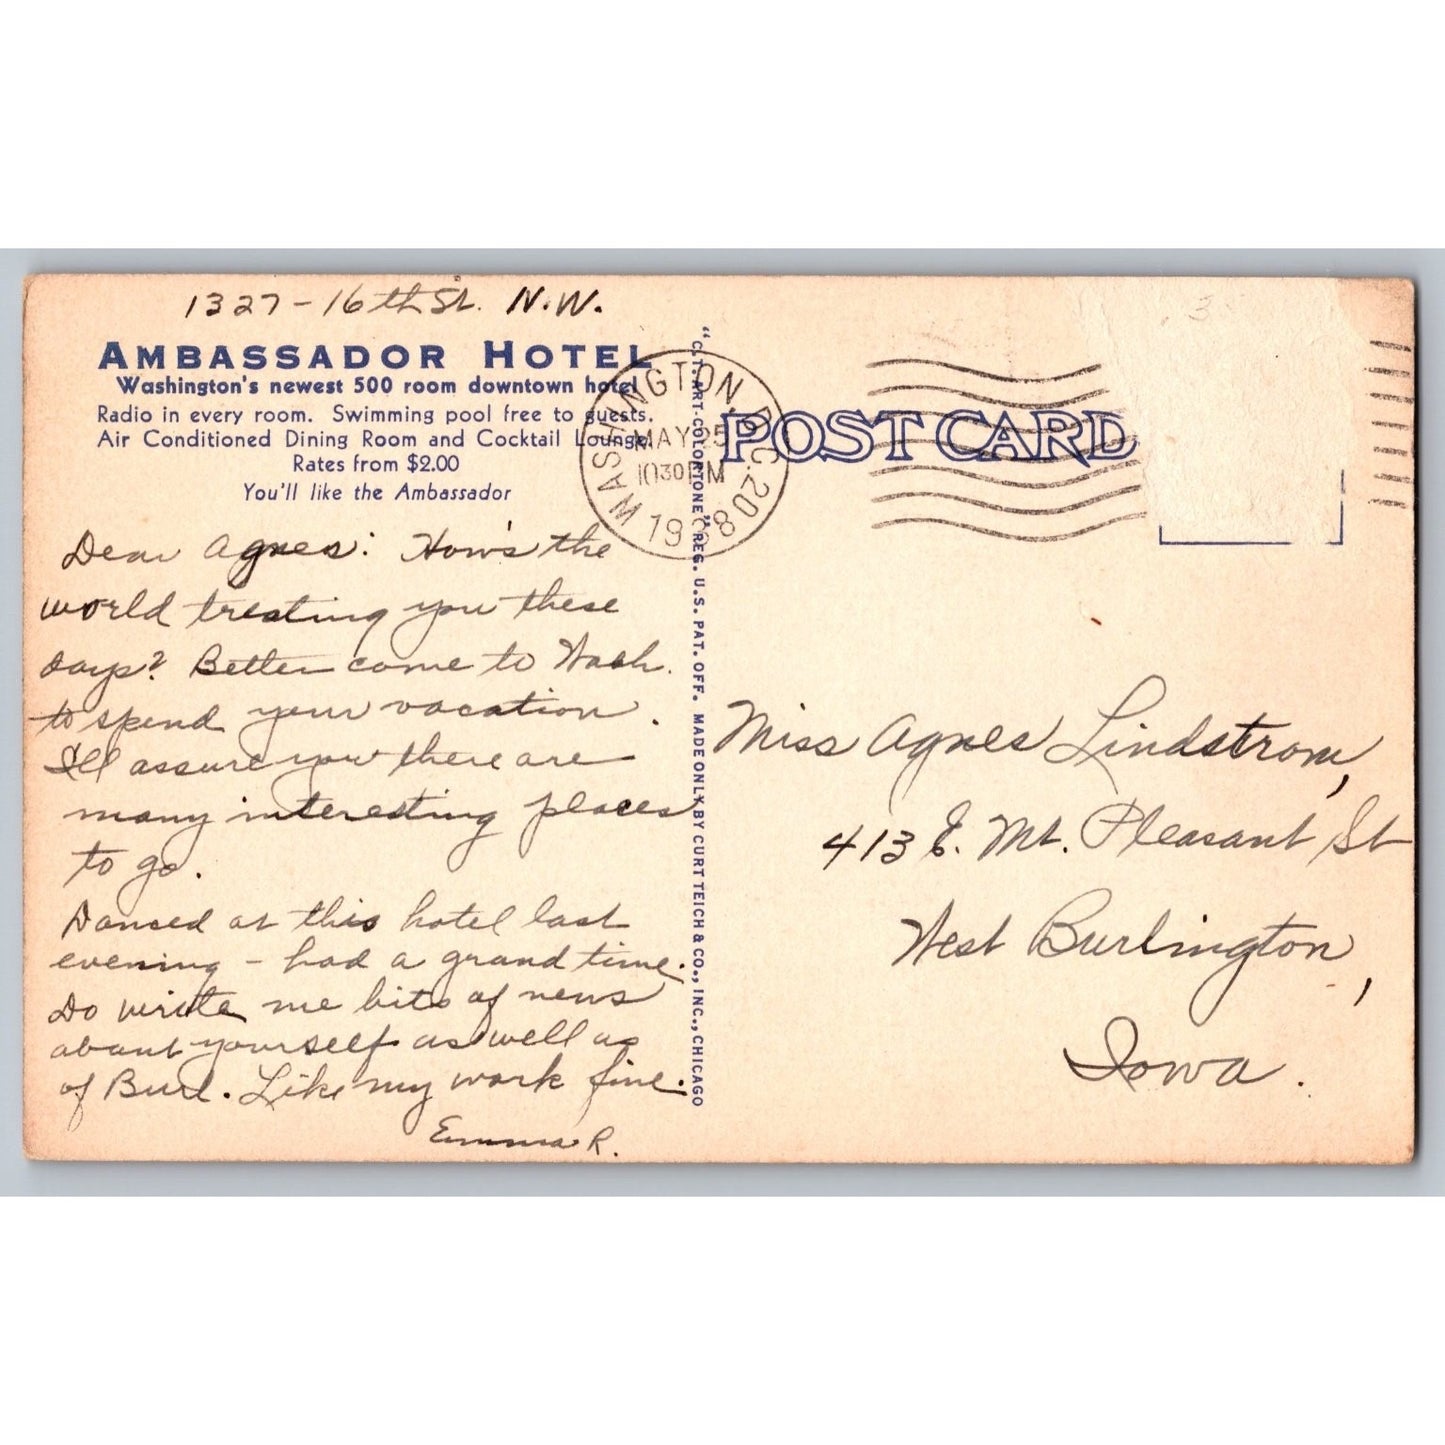 1327 - 16th St. N.W.
AMBASSADOR HOTEL
Washington's newest 500 room downtown hotel
Radio in every room. Swimming pool free to guests.
Air Conditioned Dining Room and Cocktail Lounge
Rates from $2.00
You'll like the Ambassador
Dear Agnes: How's the
world treating you these
days? Better come to Wash.
to spend your vacation.
I'll assure you there are
many interesting places
to go.
Danced at this hotel last
evening - had a grand time.
Do write me bits of news
about yourself as well as
of Burl. Like my work fine.
Emma R.
"C.T. ART-COLORTONE" REG. U.S. PAT. OFF. MADE ONLY BY CURT TEICH & CO., INC., CHICAGO
WASHINGTON, D.C. 20
MAY 25
10 30 PM
POST CARD
3
Miss Agnes Lindstrom,
413 E. Mt. Pleasant St
West Burlington,
Iowa.